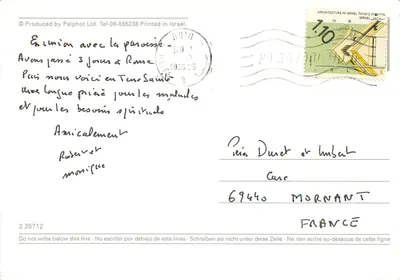 © Produced by Palphot Ltd. Tel-09-555238 Printed in Israel.
En union avec la paroisse.
Avons passé 3 jours à Rome
Puis nous voici en Terre Sainte
une longue prière pour les malades
et pour les besoins spirituels
Amicalement
Robert et
monique
1.10
Père Duret et Imbert
Cure
69440 MORNANT
FRANCE
2.25712
Do not write below this line - No escribir por debejo de esta lines - Schreiben sie nicht unter dese Zeile - Ne rien acrire au-desaous de cette ligne